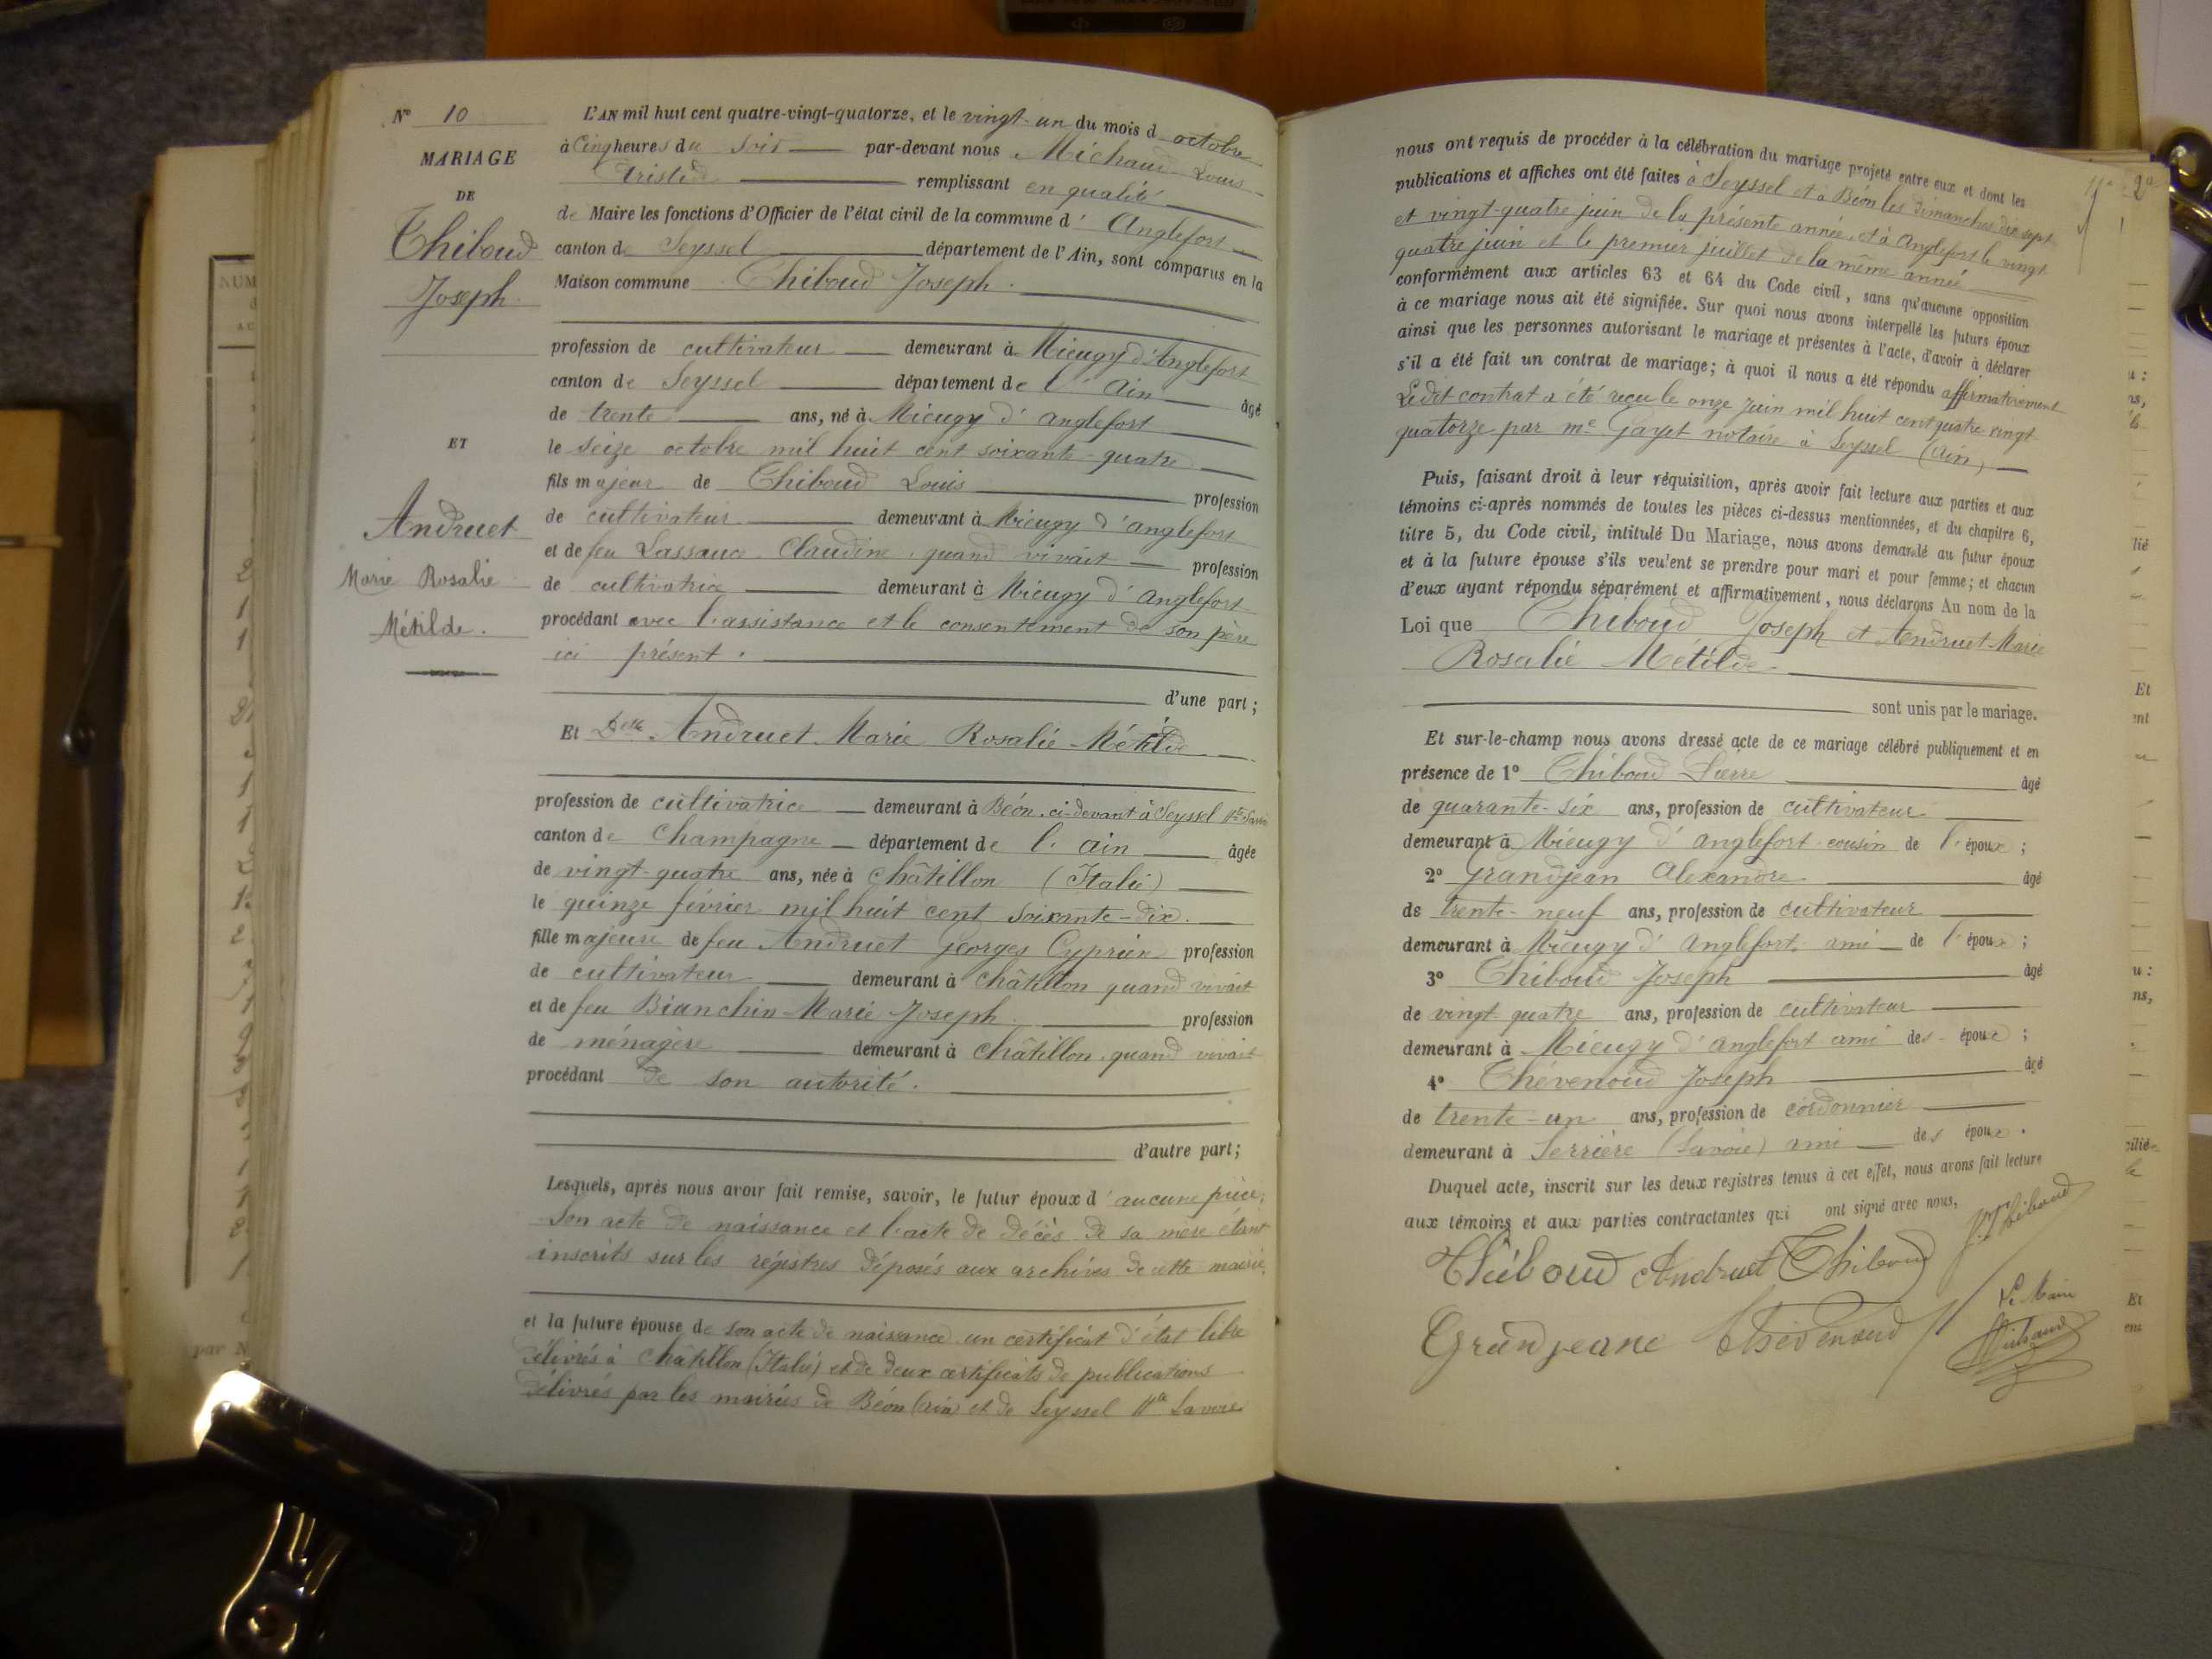 N° 10
MARIAGE
DE
Thiboud
Joseph
ET
Andruet
Marie Rosalie
Métilde.
L'AN mil huit cent quatre-vingt-quatorze, et le vingt-un du mois d octobre
à Cinq heures du Soir par-devant nous Michaud Louis
Aristide remplissant en qualité
de Maire les fonctions d'Officier de l'état civil de la commune d' Anglefort
canton de Seyssel département de l'Ain, sont comparus en la
Maison commune Thiboud Joseph.
profession de cultivateur demeurant à Mieugy d'Anglefort
canton de Seyssel département de l' Ain âgé
de trente ans, né à Mieugy d' anglefort
le seize octobre mil huit cent soixante-quatre
fils majeur de Thiboud Louis profession
de cultivateur demeurant à Mieugy d' anglefort
et de feu Lassauce Claudine quand vivait profession
de cultivatrice demeurant à Mieugy d' anglefort
procédant avec l'assistance et le consentement de son père
ici présent.
d'une part;
Et Delle Andruet Marie Rosalie Métilde
profession de cultivatrice demeurant à Béon, ci-devant à Seyssel Hte Savoie
canton de Champagne département de l' ain âgée
de vingt-quatre ans, née à Châtillon (Italie)
le quinze février mil huit cent soixante-dix.
fille majeure de feu Andruet Georges Cyprien profession
de cultivateur demeurant à Châtillon quand vivait
et de feu Bianchin Marie Joseph. profession
de ménagère demeurant à Châtillon, quand vivait
procédant de son autorité.
d'autre part;
Lesquels, après nous avoir fait remise, savoir, le futur époux d'aucune pièce,
Son acte de naissance et l'acte de décès de sa mère étant
inscrits sur les régistres déposés aux archives de cette mairie,
et la future épouse de son acte de naissance un certificat d'état libre
délivrés à Châtillon (Italie) et de deux certificats de publications
délivrés par les mairies de Béon (ain) et de Seyssel Hte Savoie
nous ont requis de procéder à la célébration du mariage projeté entre eux et dont les
publications et affiches ont été faites à Seyssel et à Béon les dimanches dix sept
et vingt-quatre juin de la présente année, et à Anglefort le vingt
quatre juin et le premier juillet de la même année
conformément aux articles 63 et 64 du Code civil, sans qu'aucune opposition
à ce mariage nous ait été signifiée. Sur quoi nous avons interpellé les futurs époux
ainsi que les personnes autorisant le mariage et présentes à l'acte, d'avoir à déclarer
s'il a été fait un contrat de mariage; à quoi il nous a été répondu affirmativement
Ledit contrat a été reçu le onze juin mil huit cent quatre vingt
quatorze par me Gayet notaire à Seyssel (Ain)
Puis, faisant droit à leur réquisition, après avoir fait lecture aux parties et aux
témoins ci-après nommés de toutes les pièces ci-dessus mentionnées, et du chapitre 6,
titre 5, du Code civil, intitulé Du Mariage, nous avons demandé au futur époux
et à la future épouse s'ils veulent se prendre pour mari et pour femme; et chacun
d'eux ayant répondu séparément et affirmativement, nous déclarons Au nom de la
Loi que Thiboud Joseph et Andruet Marie
Rosalie Métilde
sont unis par le mariage.
Et sur-le-champ nous avons dressé acte de ce mariage célébré publiquement et en
présence de 1° Thiboud Pierre âgé
de quarante-six ans, profession de cultivateur
demeurant à Mieugy d' anglefort cousin de l'époux;
2° Grandjean Alexandre âgé
de trente-neuf ans, profession de cultivateur
demeurant à Mieugy d' Anglefort ami de l'époux;
3° Thiboud Joseph âgé
de vingt quatre ans, profession de cultivateur
demeurant à Mieugy d' anglefort ami des époux;
4° Thévenoud Joseph âgé
de trente-un ans, profession de cordonnier
demeurant à Serrière (Savoie) ami des époux.
Duquel acte, inscrit sur les deux registres tenus à cet effet, nous avons fait lecture
aux témoins et aux parties contractantes qui ont signé avec nous.
Thiboud Andruet Thiboud J. Thiboud
Grandjeane Thévenoud Le Maire
Michaud